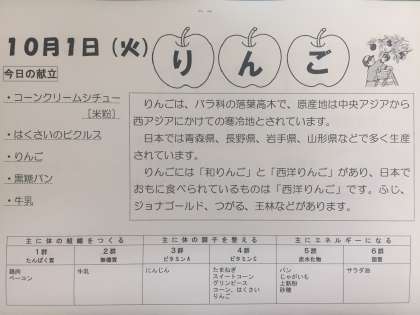 10月1日（火）
りんご
今日の献立
・コーンクリームシチュー
［米粉］
・はくさいのピクルス
・りんご
・黒糖パン
・牛乳
りんごは、バラ科の落葉高木で、原産地は中央アジアから
西アジアにかけての寒冷地とされています。
日本では青森県、長野県、岩手県、山形県などで多く生産
されています。
りんごには「和りんご」と「西洋りんご」があり、日本で
おもに食べられているものは「西洋りんご」です。ふじ、
ジョナゴールド、つがる、王林などがあります。
主に体の組織をつくる 主に体の調子を整える 主にエネルギーになる
1群 2群 3群 4群 5群 6群
たんぱく質 無機質 ビタミンA ビタミンC 炭水化物 脂質
鶏肉 牛乳 にんじん たまねぎ パン サラダ油
ベーコン スイートコーン じゃがいも
グリンピース 上新粉
コーン、はくさい 砂糖
りんご